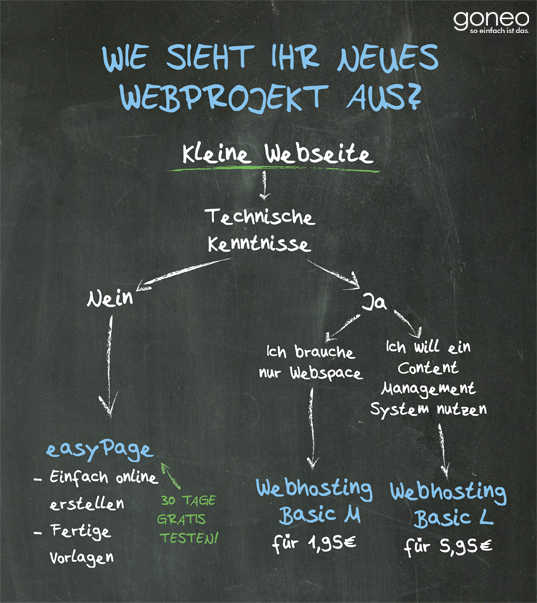 goneo
so einfach ist das.
WIE SIEHT IHR NEUES
WEBPROJEKT AUS?
Kleine Webseite
Technische
Kenntnisse
Nein
Ja
Ich brauche
nur Webspace
Ich will ein
Content
Management
System nutzen
easyPage
- Einfach online
erstellen
- Fertige
Vorlagen
30 TAGE
GRATIS
TESTEN!
Webhosting
Basic M
für 1,95€
Webhosting
Basic L
für 5,95€